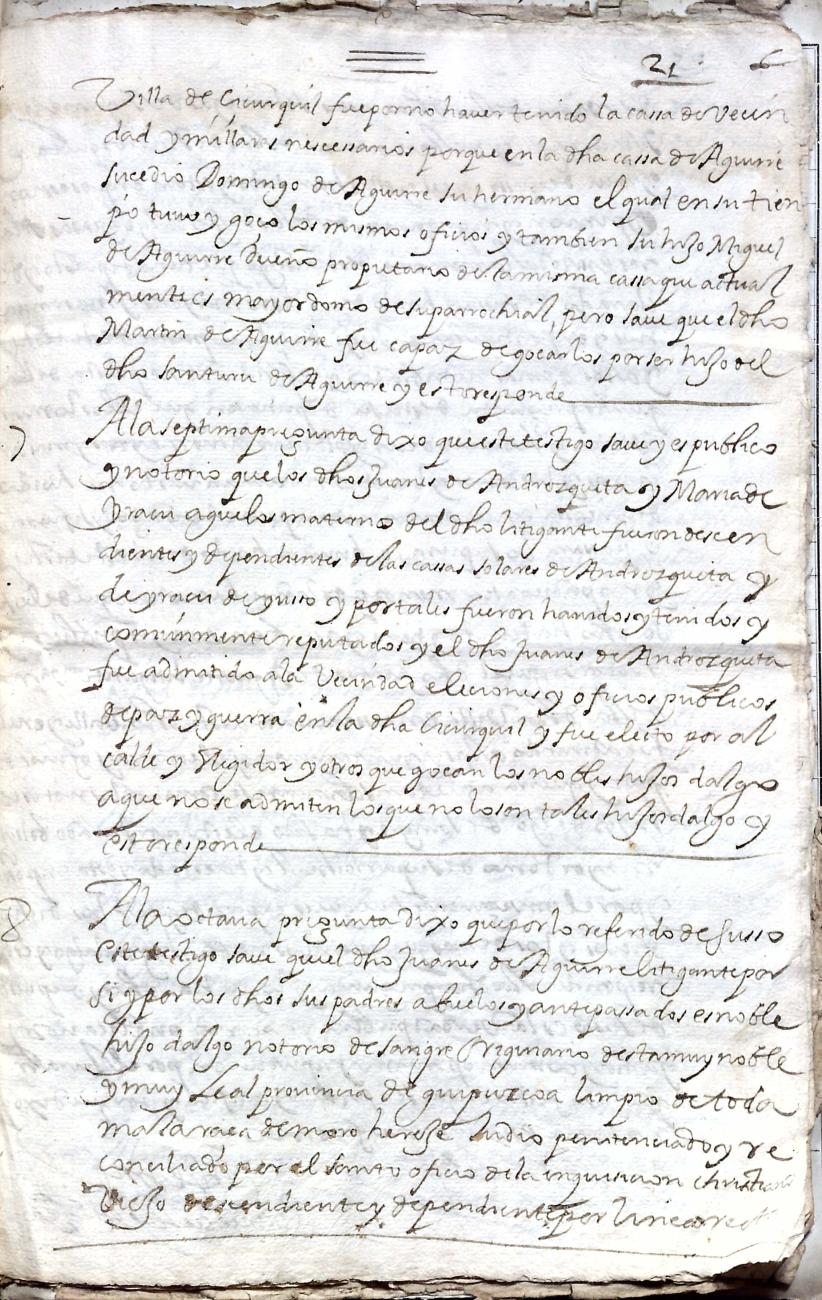 21 6
Villa de Cicurquil fue por no haver tenido la cassa de Vecin
dad y millares nescessarios porque en la dha cassa de Aguirre
sucedio Domingo de Aguirre su hermano el qual en su tien
po tuvo y goço los mismos oficios y tambien su hijo Miguel
de Aguirre dueño propietario de la misma cassa que actual
mente es mayordomo de su parrochial, pero save que el dho
Martin de Aguirre fue capaz de goçarlos por ser hijo del
dho santuru de Aguirre y esto responde
7 A la septima pregunta dixo que este testigo save y es publico
y notorio que los dhos Juanes de Androzqueta y Maria de
Yraçu aguelos maternos del dho litigante fueron descen
dientes y dependientes de las cassas solares de Androzqueta y
de yraçu de yuso y por tales fueron havidos y tenidos y
comunmente reputados y el dho Juanes de Androzqueta
fue admitido a la Vecindad eleciones y oficios publicos
de paz y guerra en la dha Cicurquil y fue eleto por al
calde y Regidor y otros que goçan los nobles hijos dalgo
a que no se admiten los que no lo son tales hijosdalgo y
esto responde
8 A la octava pregunta dixo que por lo referido de susso
este testigo save que el dho Juanes de Aguirre litigante por
si y por los dhos sus padres abuelos y antepassados es noble
hijo dalgo notorio de sangre Originario desta muy noble
y muy Leal provincia de guipuzcoa limpio de toda
mala raça de moro hereje Judio penitenciado y re
conciliado por el santo oficio de la inquisicion christiano
Viejo descendiente y dependiente por linea recta